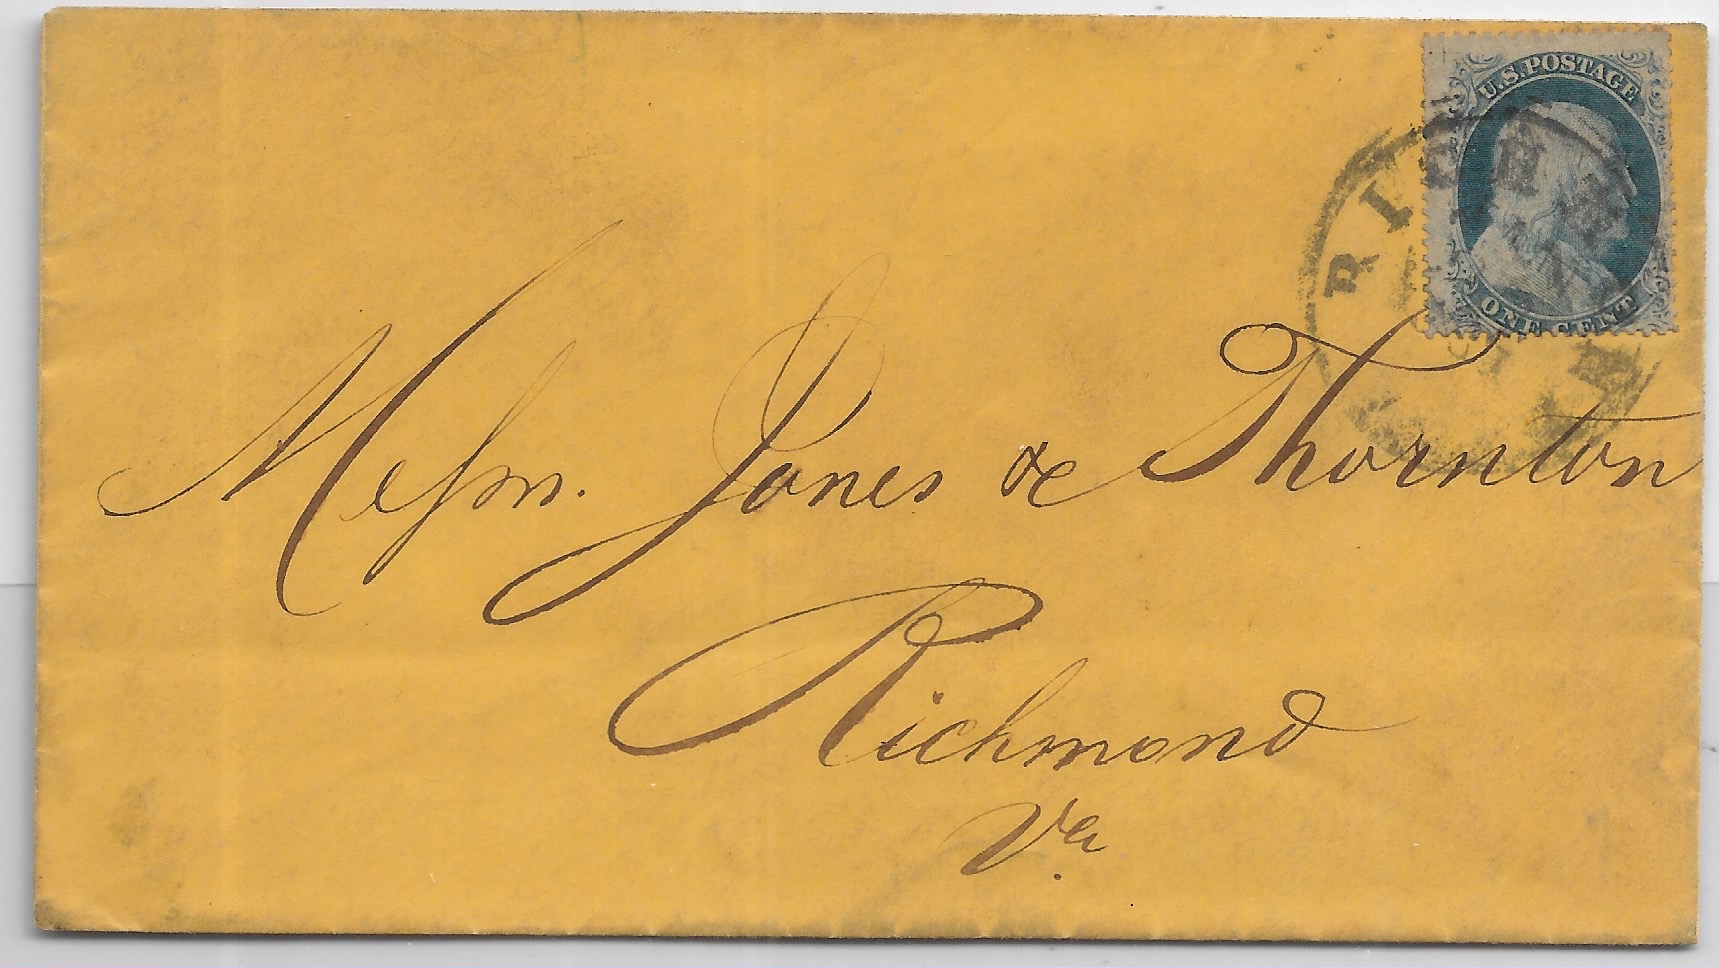 U.S. POSTAGE
ONE CENT
RICHM
Messrs. Jones & Thornton
Richmond
Va.